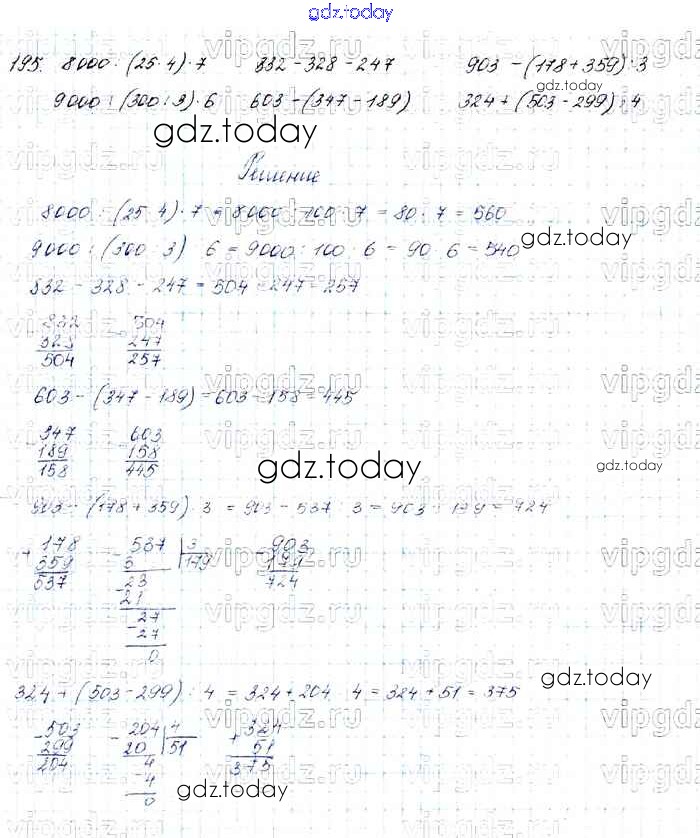 gdz.today
195. 8000 : (25·4)·7 832 - 328 - 247 903 - (178+359) : 3
9000 : (300 : 3)·6 603 - (347 - 189) 324 + (503 - 299) : 4
gdz.today
gdz.today
Решение
8000 : (25·4)·7 = 8000 : 100 · 7 = 80 · 7 = 560
gdz.today
9000 : (300 : 3) 6 = 9000 : 100 · 6 = 90 · 6 = 540
832 - 328 - 247 = 504 - 247 = 257
832 504
328 247
504 257
603 - (347 - 189) = 603 - 158 = 445
347 603
189 158
158 445
gdz.today
gdz.today
903 - (178 + 359) : 3 = 903 - 537 : 3 = 903 - 179 = 724
+ 178 - 537 3 - 903
359 3 179 179
537 - 23 724
21
- 27
27
0
gdz.today
324 + (503 - 299) : 4 = 324 + 204 : 4 = 324 + 51 = 375
- 503 - 204 4 + 324
299 20 51 51
204 4 375
- 4
0
gdz.today
vipgdz.ru